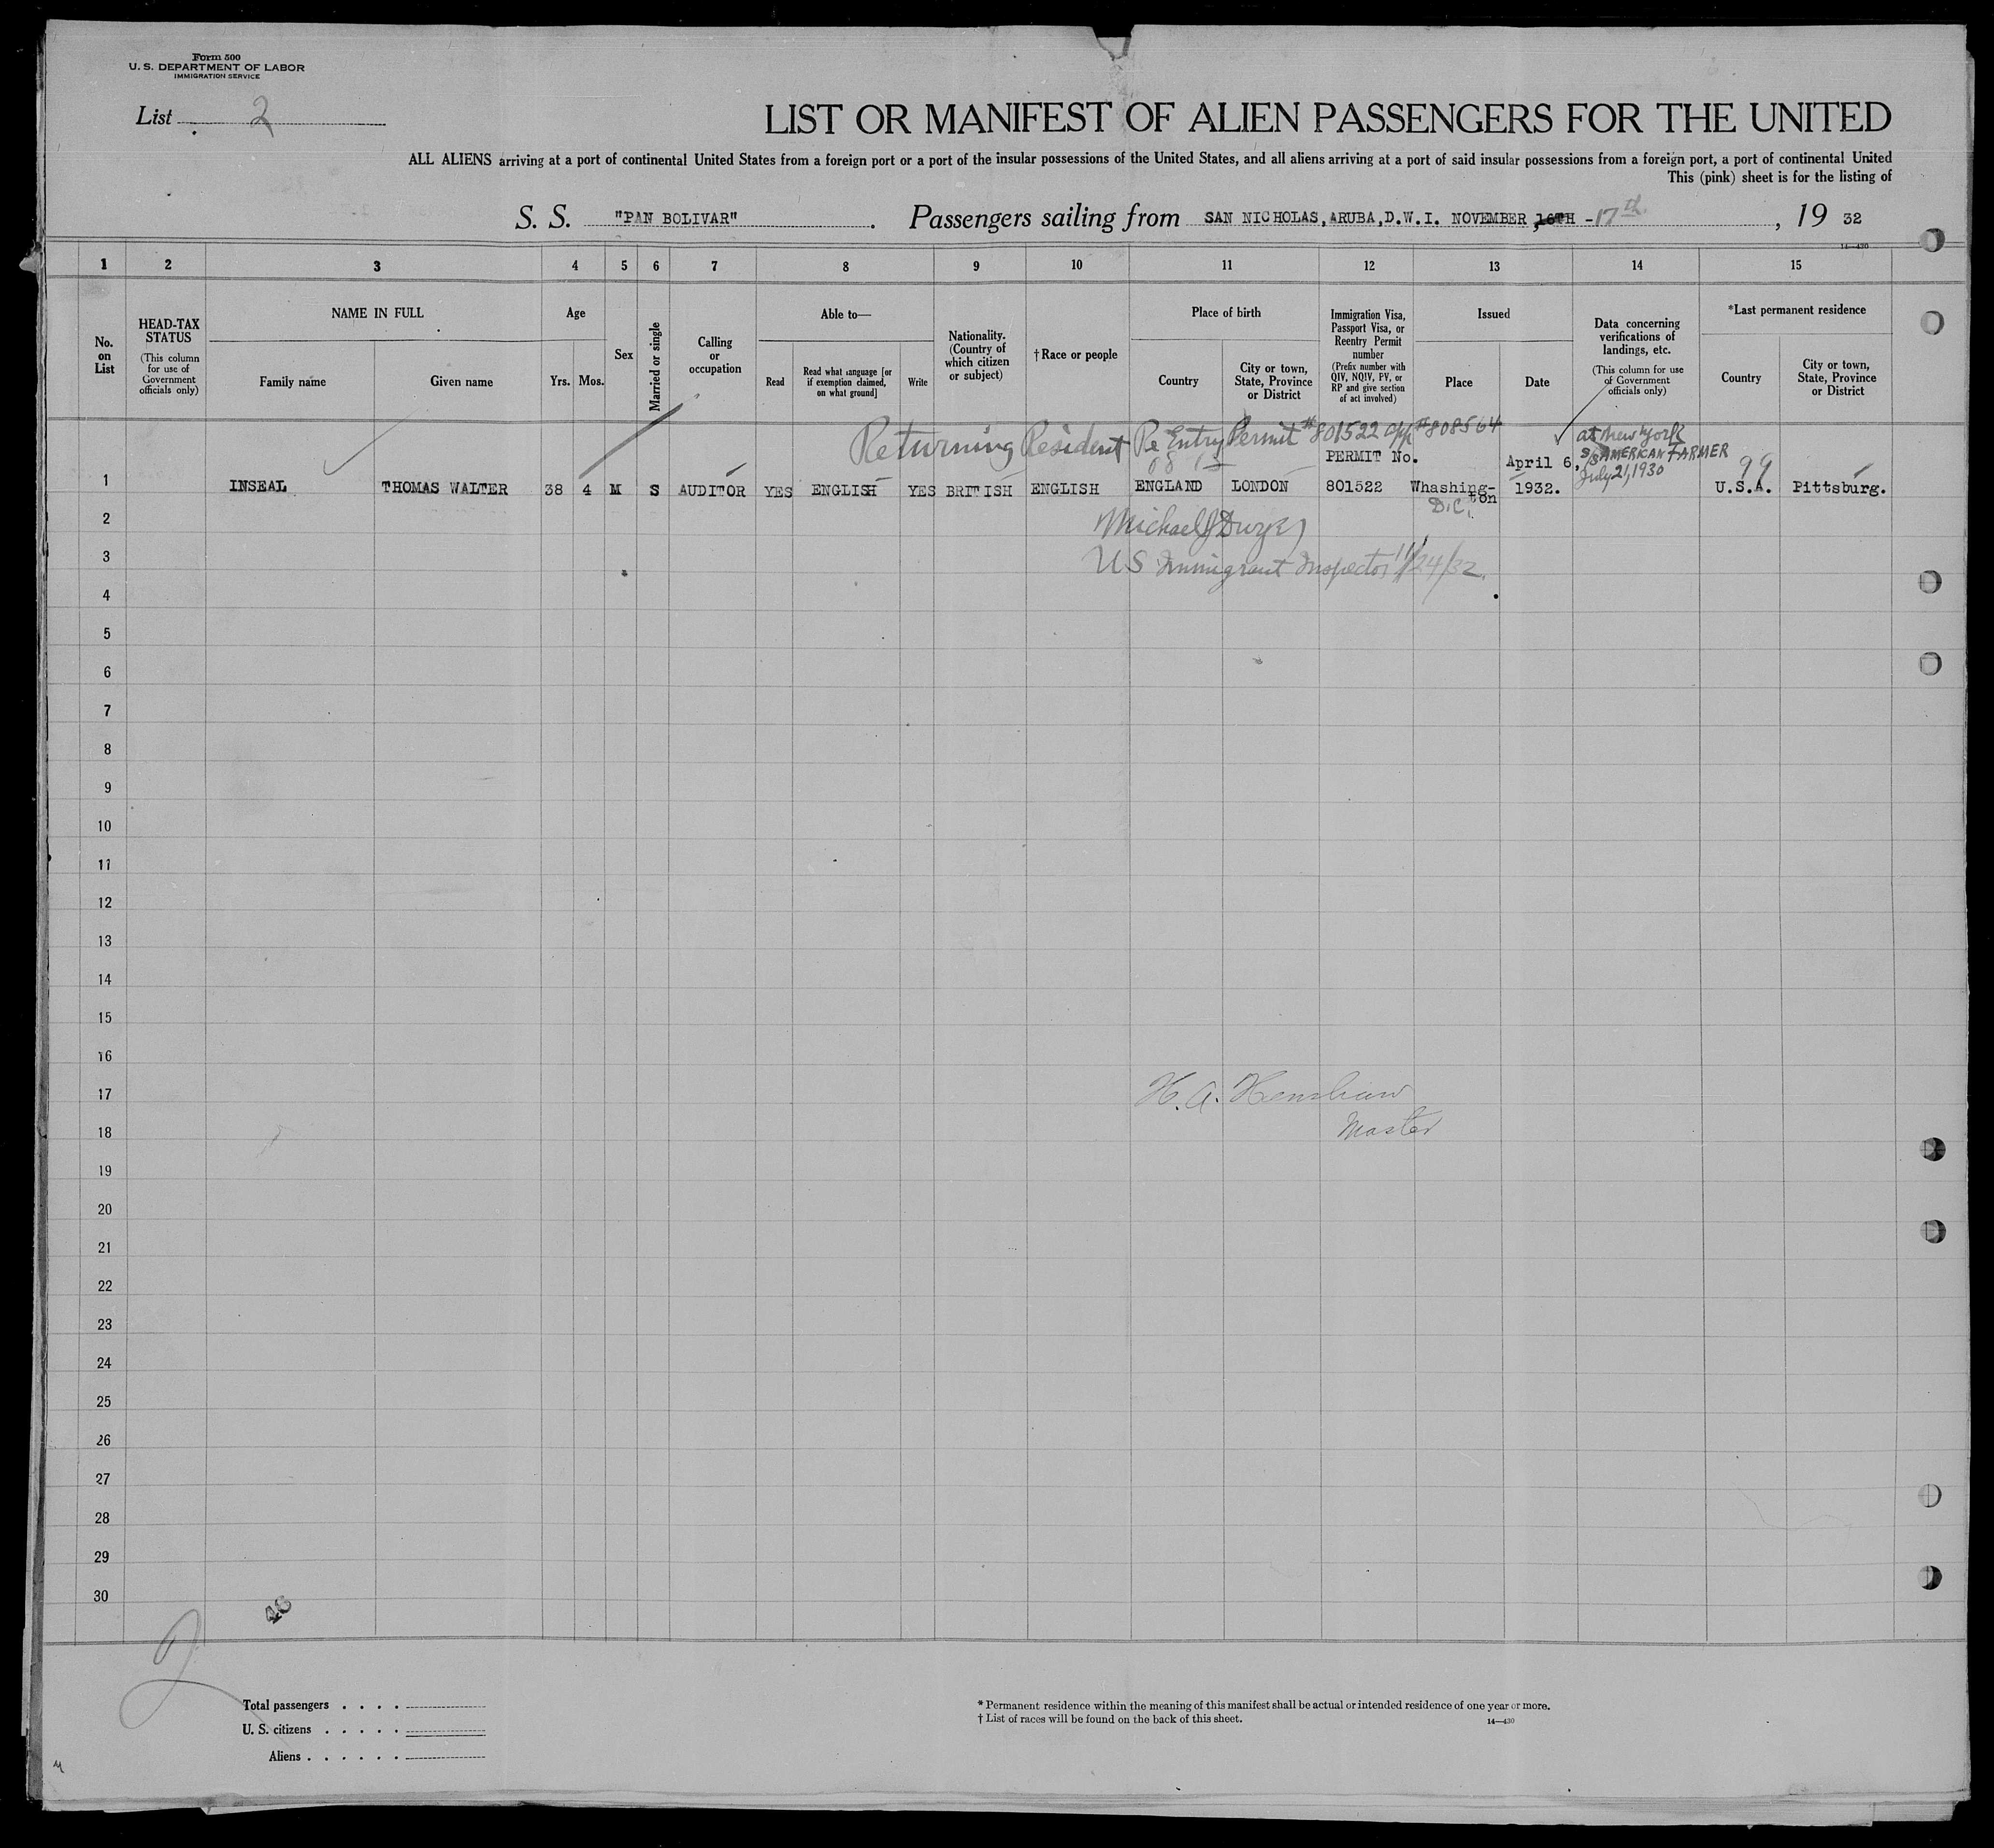 Form 500
U. S. DEPARTMENT OF LABOR
IMMIGRATION SERVICE
List 2
LIST OR MANIFEST OF ALIEN PASSENGERS FOR THE UNITED
ALL ALIENS arriving at a port of continental United States from a foreign port or a port of the insular possessions of the United States, and all aliens arriving at a port of said insular possessions from a foreign port, a port of continental United
This (pink) sheet is for the listing of
S. S. "PAN BOLIVAR". Passengers sailing from SAN NICHOLAS, ARUBA, D.W.I. NOVEMBER, 16TH -17th, 19 32
14—430
1 2 3 4 5 6 7 8 9 10 11 12 13 14 15
No. on List
HEAD-TAX STATUS
(This column for use of Government officials only)
NAME IN FULL
Family name
Given name
Age
Yrs. Mos.
Sex
Married or single
Calling or occupation
Able to—
Read
Read what language [or if exemption claimed, on what ground]
Write
Nationality. (Country of which citizen or subject)
†Race or people
Place of birth
Country
City or town, State, Province or District
Immigration Visa, Passport Visa, or Reentry Permit number
(Prefix number with QIV, NQIV, PV, or RP and give section of act involved)
Issued
Place
Date
Data concerning verifications of landings, etc.
(This column for use of Government officials only)
*Last permanent residence
Country
City or town, State, Province or District
Returning Resident Re Entry Permit #801522 app #808564
at New York
S/S AMERICAN FARMER
July 21, 1930
PERMIT No. April 6, 99
1 INSEAL THOMAS WALTER 38 4 M S AUDITOR YES ENGLISH YES BRITISH ENGLISH ENGLAND LONDON 801522 Whashing-ton 1932. U.S.A. Pittsburg.
D.C.
2
Michael J
3
US Immigrant Inspector 11/24/32.
4
5
6
7
8
9
10
11
12
13
14
15
16
17
H. A. Henshaw
18
Master
19
20
21
22
23
24
25
26
27
28
29
30
2
Total passengers . . . .
U. S. citizens . . . . .
Aliens . . . . . .
* Permanent residence within the meaning of this manifest shall be actual or intended residence of one year or more.
† List of races will be found on the back of this sheet.
14—430